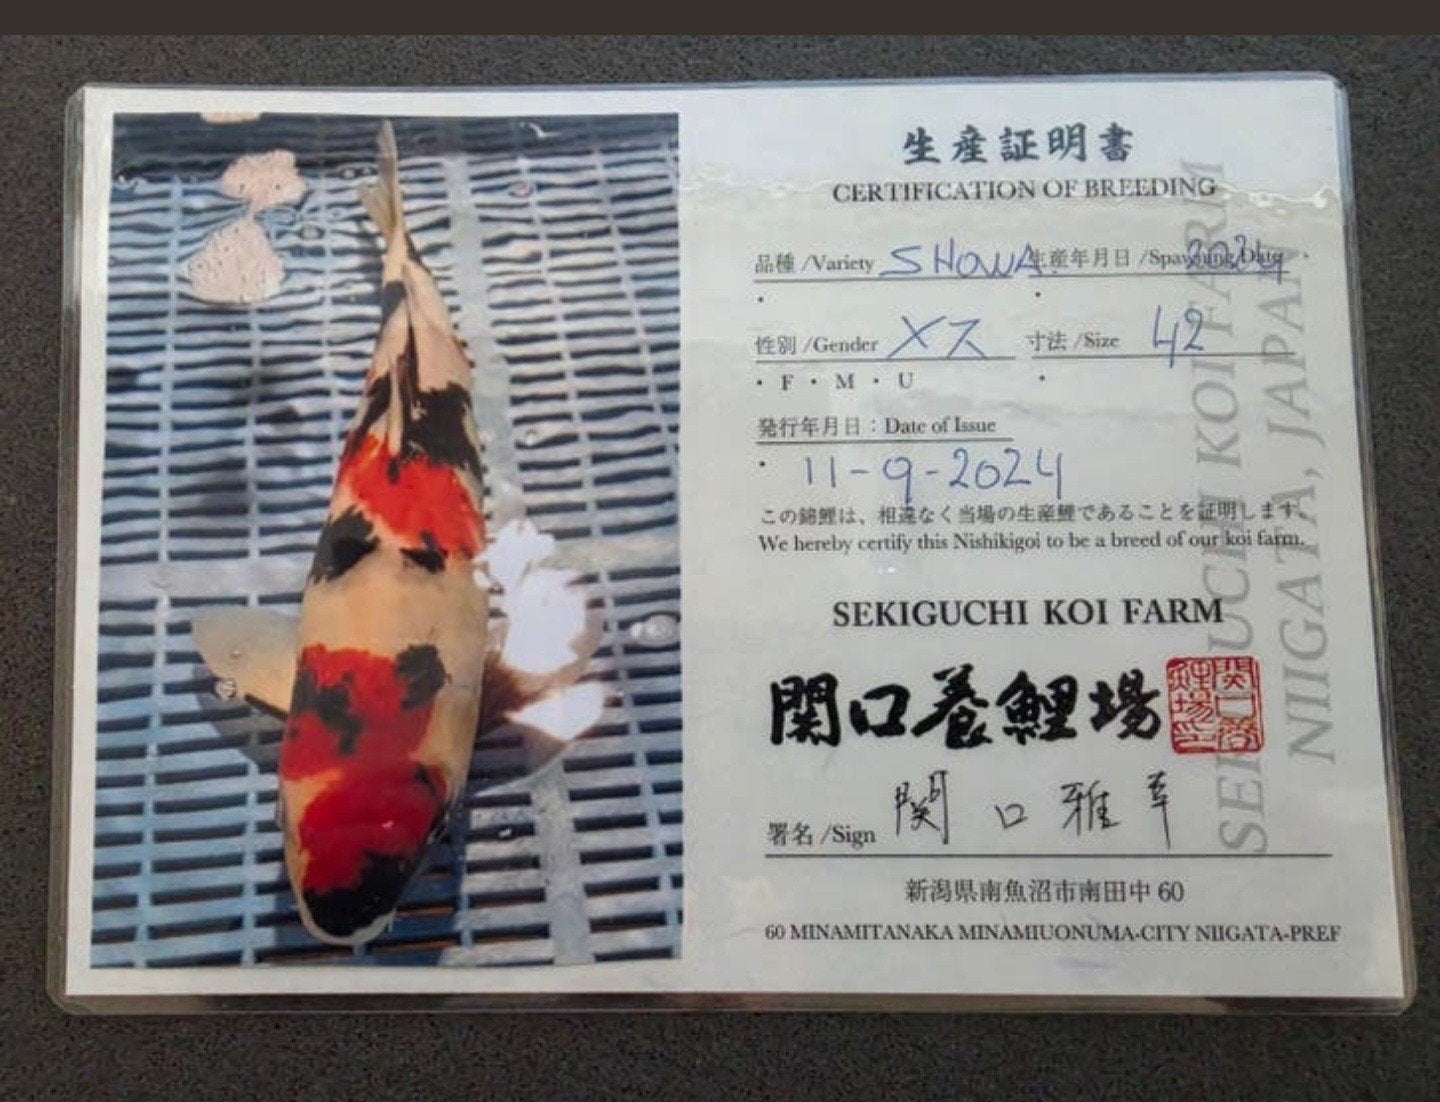 生産証明書
CERTIFICATION OF BREEDING
品種 /Variety SHOWA 生産年月日 /Spawning Date 2024
性別 /Gender メス 寸法 /Size 42
・ F ・ M ・ U
発行年月日：Date of Issue
11-9-2024
この錦鯉は、相違なく当場の生産鯉であることを証明します。
We hereby certify this Nishikigoi to be a breed of our koi farm.
SEKIGUCHI KOI FARM
関口養鯉場
署名 /Sign 関口雅
新潟県南魚沼市南田中 60
60 MINAMITANAKA MINAMIUONUMA-CITY NIIGATA-PREF
SEKIGUCHI KOI FARM
NIIGATA, JAPAN